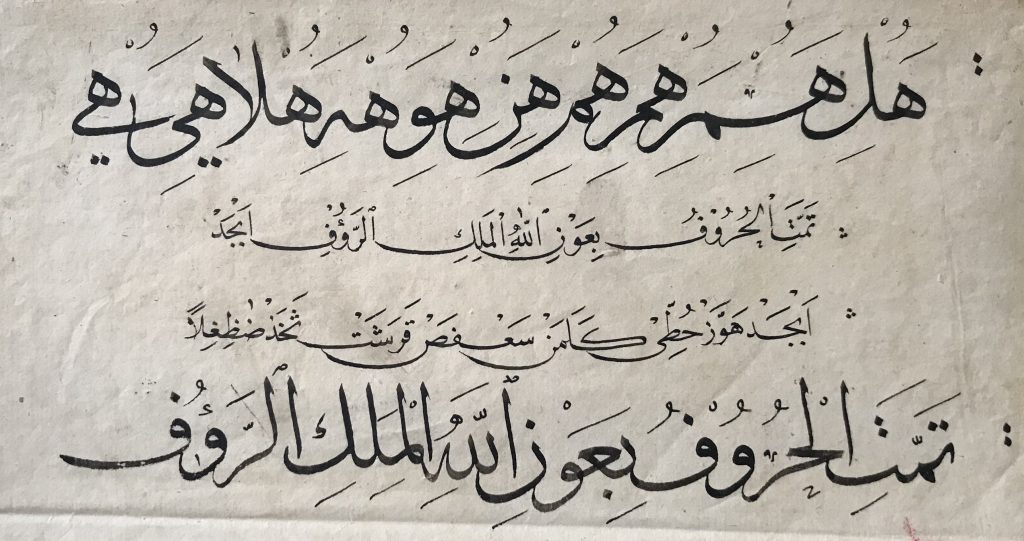 هل هم همر هم هن هو هه هلا هى هي
تَمَّتِ الْحُرُوْفُ بِعَوْنِ اللهِ الْمَلِكِ الرَّؤُفِ اَبْجَدْ
اَبْجَدْ هَوَّزْ حُطِّىْ كَلَمَنْ سَعْفَصْ قَرَشَتْ ثَخَذْ ضَظَغِلاً
تَمَّتِ الْحُرُوْفُ بِعَوْنِ اللهِ الْمَلِكِ الرَّؤُفِ